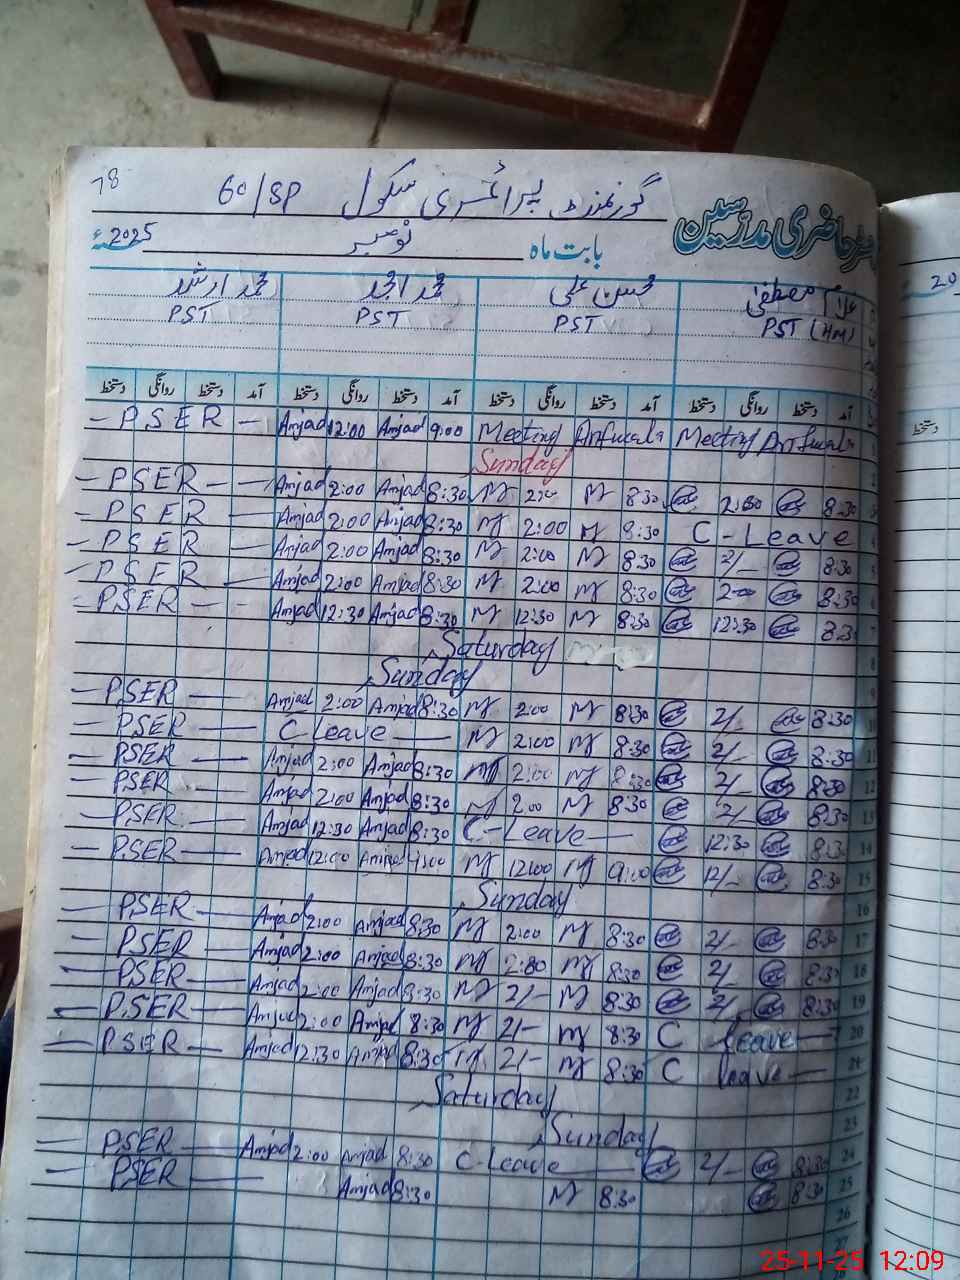 78 گورنمنٹ پرائمری سکول 60/SP
رجسٹر حاضری مدرسین
بابت ماہ نومبر 2025ء
غلام مصطفیٰ محسن علی محمد امجد محمد ارشد
PST (HM) PST PST PST
آمد دستخط روانگی دستخط آمد دستخط روانگی دستخط آمد دستخط روانگی دستخط آمد دستخط روانگی دستخط
- PSER - Amjad 12:00 Amjad 9:00 Meeting Meeting 1
Sunday 2
- PSER - Amjad 2:00 Amjad 8:30 M 2:00 M 8:30 2:00 8:30 3
- PSER - Amjad 2:00 Amjad 8:30 M 2:00 M 8:30 C-Leave 4
- PSER - Amjad 2:00 Amjad 8:30 M 2:00 M 8:30 2/- 8:30 5
- PSER - Amjad 2:00 Amjad 8:30 M 2:00 M 8:30 2:00 8:30 6
- PSER - Amjad 12:30 Amjad 8:30 M 12:30 M 8:30 12:30 8:30 7
Saturday 8
Sunday 9
- PSER - Amjad 2:00 Amjad 8:30 M 2:00 M 8:30 2/- 8:30 10
- PSER - C Leave - M 2:00 M 8:30 2/- 8:30 11
- PSER - Amjad 2:00 Amjad 8:30 M 2:00 M 8:30 2/- 8:30 12
- PSER - Amjad 2:00 Amjad 8:30 M 2:00 M 8:30 2/- 8:30 13
- PSER - Amjad 12:30 Amjad 8:30 C-Leave - 12:30 8:30 14
- PSER - Amjad 12:00 Amjad 9:00 M 12:00 M 9:00 12/- 8:30 15
Sunday 16
- PSER - Amjad 2:00 Amjad 8:30 M 2:00 M 8:30 2/- 8:30 17
- PSER - Amjad 2:00 Amjad 8:30 M 2:00 M 8:30 2/- 8:30 18
- PSER - Amjad 2:00 Amjad 8:30 M 2/- M 8:30 2/- 8:30 19
- PSER - Amjad 2:00 Amjad 8:30 M 2/- M 8:30 C leave - 20
- PSER - Amjad 12:30 Amjad 8:30 M 2/- M 8:30 C leave - 21
Saturday 22
Sunday 23
- PSER - Amjad 2:00 Amjad 8:30 C-Leave - 2/- 8:30 24
- PSER - Amjad 8:30 M 8:30 8:30 25
26
27
20
دستخط
25-11-25 12:09